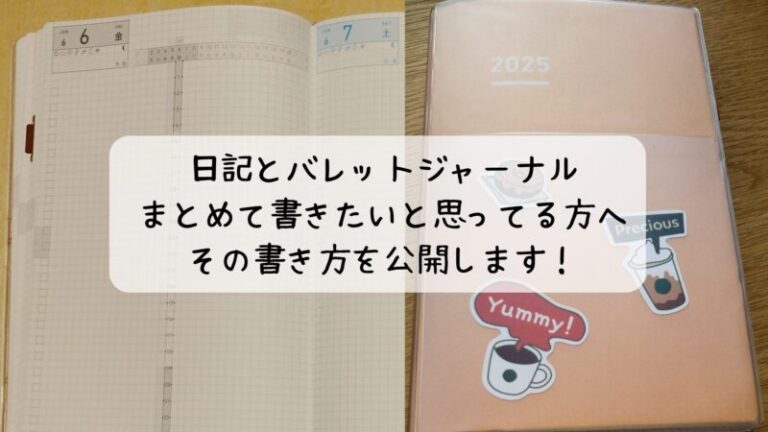 6
6
金
6
7
土
2025
日記とバレットジャーナル
まとめて書きたいと思ってる方へ
その書き方を公開します！
Precious
Yummy!